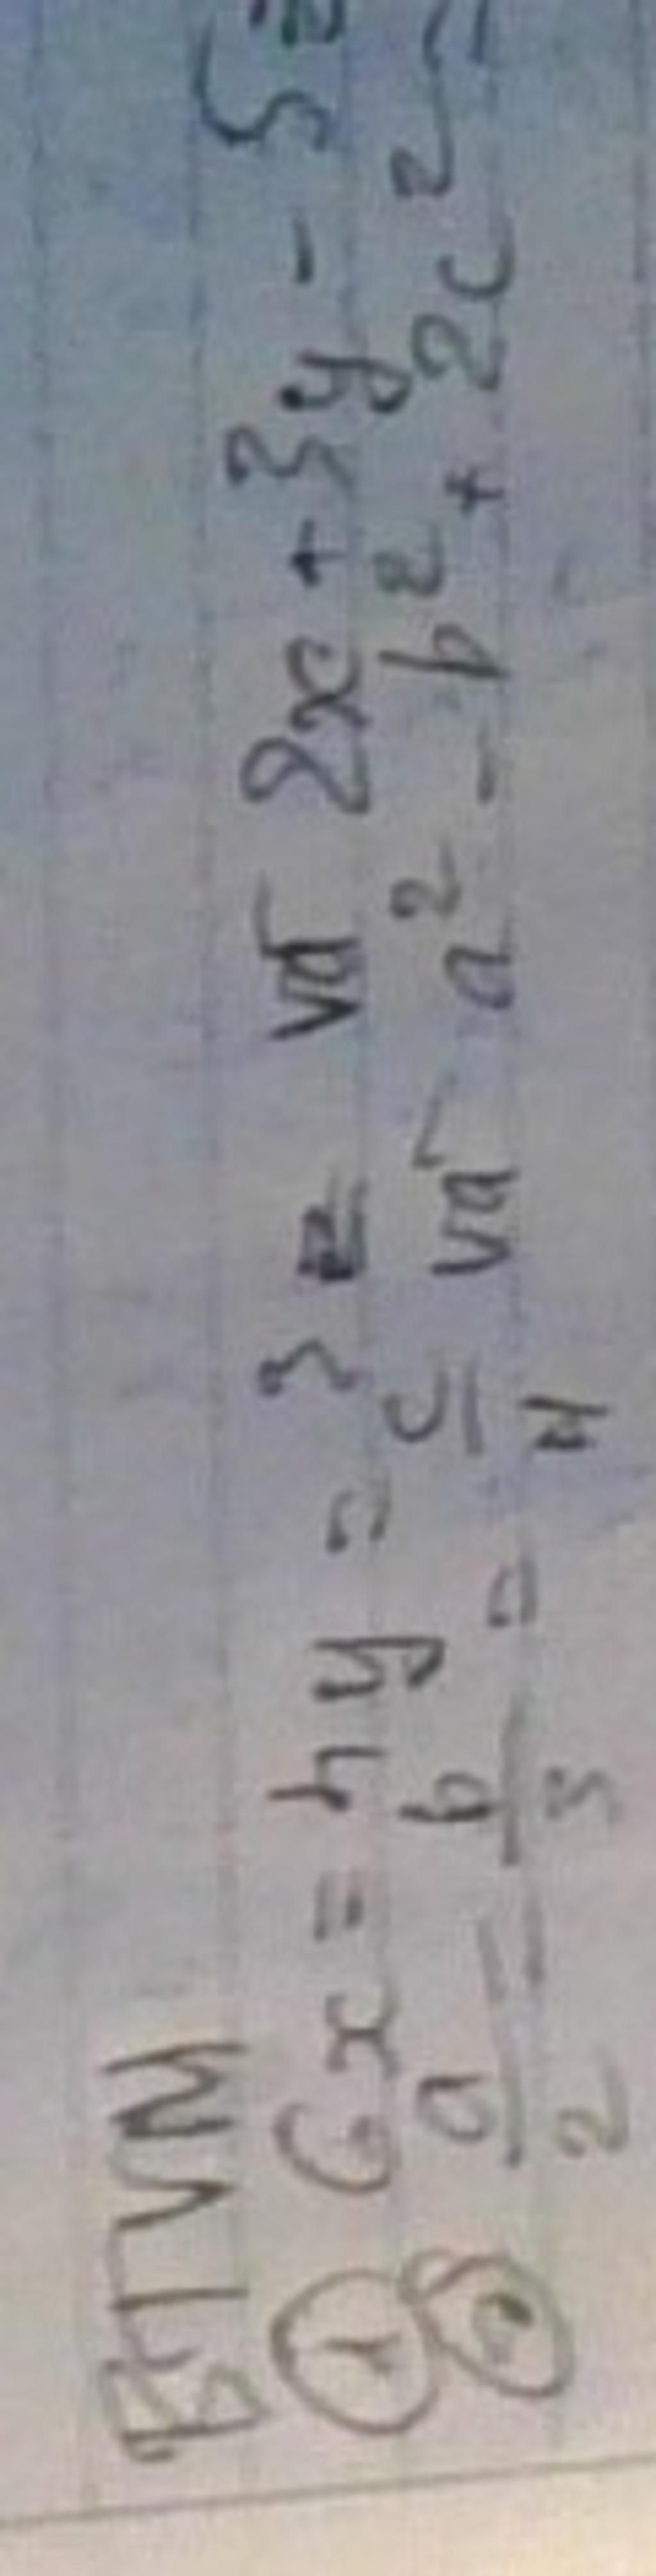 BTVN
① 6x = 4y = 3z và 2x + 3y - 5z
② a/2 = b/3 = c/4 và a² - b² + 2c² =